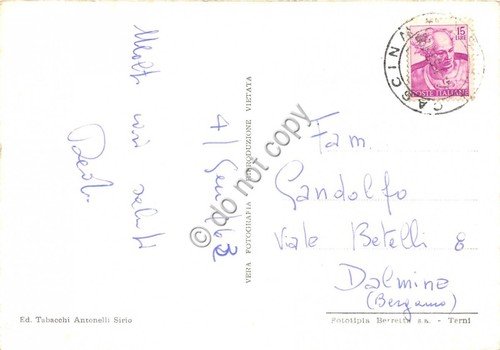 Molti cari saluti
4/Gen/63
VERA FOTOGRAFIA RIPRODUZIONE VIETATA
© do not copy
15
LIRE
POSTE ITALIANE
CASCINA
Fam.
Gandolfo
Viale Betelli 8
Dalmine
(Bergamo)
Ed. Tabacchi Antonelli Sirio
Fototipia Berretta s.a. - Terni